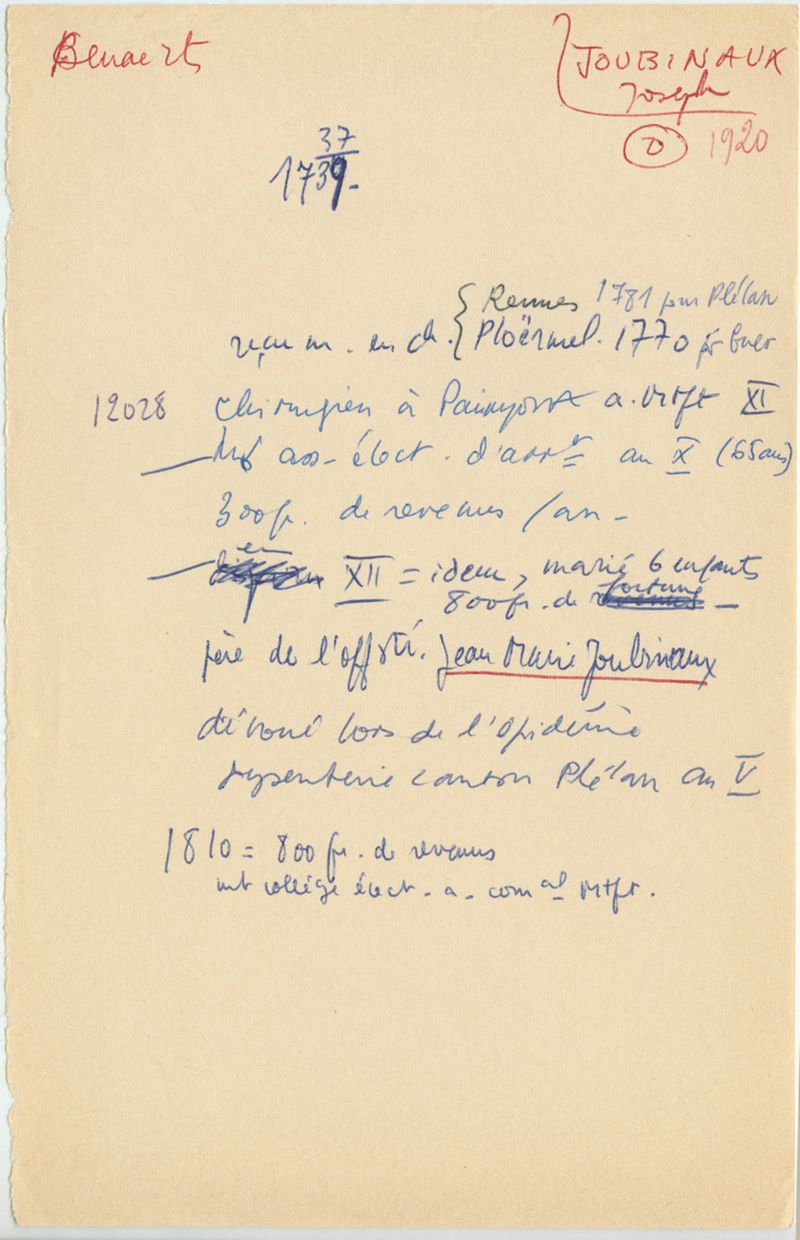 Benaerts
JOUBINAUX
Joseph
D 1920
37
1739-
Rennes 1781 pour Plélan
reçu m. en ch. Ploërmel. 1770 pr Guer
12028 chirurgien à Paimpont a. Mtft XI
ass. élect. d'arrt au X (65 ans)
300 fr. de revenus /an -
en
XII = idem, marié 6 enfants
fortune
800 fr. de revenus -
père de l'off. sté. Jean Marie Joubinaux
dévoué lors de l'épidémie
dysenterie canton Plélan an V
1810 = 800 fr. de revenus
mt collège élect. a. comal Mtft.